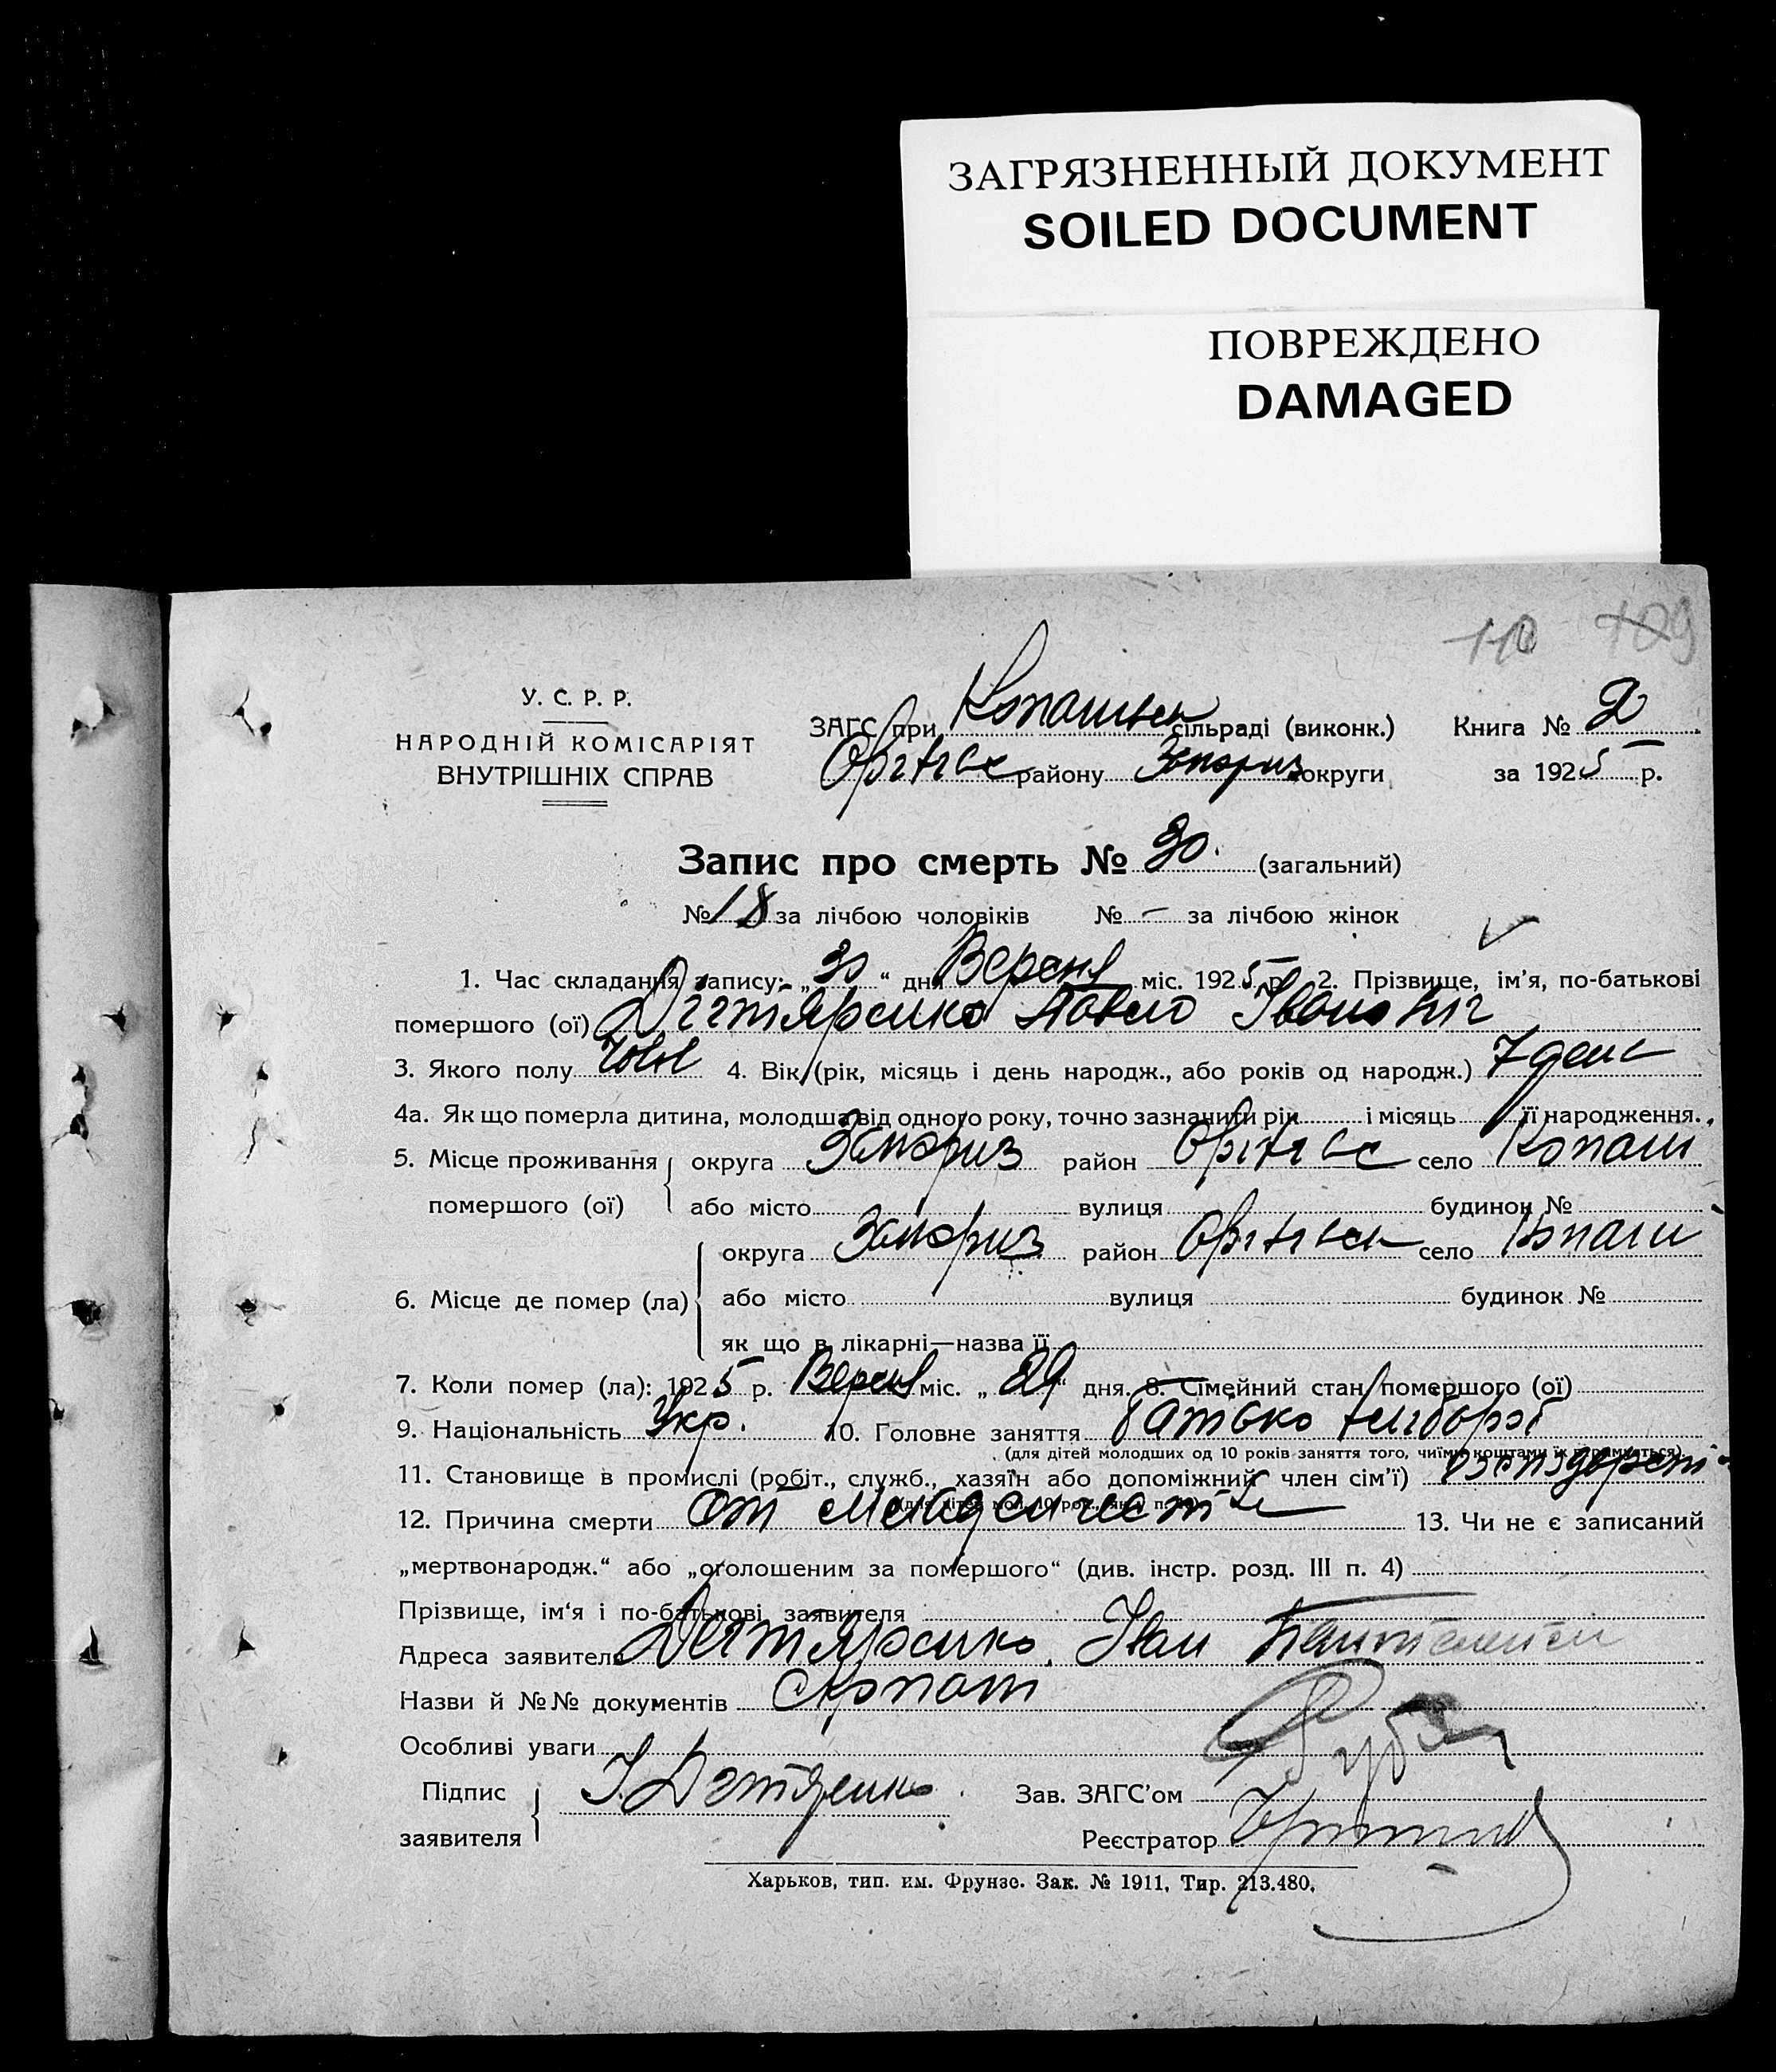 ЗАГРЯЗНЕННЫЙ ДОКУМЕНТ
SOILED DOCUMENT
ПОВРЕЖДЕНО
DAMAGED
110 109
У. С. Р. Р.
НАРОДНІЙ КОМІСАРІЯТ
ВНУТРІШНІХ СПРАВ
ЗАГС при сільраді (виконк.) Книга № 2
району Запориз округи за 1925 р.
Запис про смерть № 30. (загальний)
№ 18 за лічбою чоловіків № – за лічбою жінок
1. Час складання запису: „30“ дня Вересня міс. 1925 р. 2. Прізвище, ім'я, по-батькові
помершого (ої) Дігтяренко Павло Іванович
3. Якого полу 4. Вік (рік, місяць і день народж., або років од народж.) 7 ден
4а. Як що померла дитина, молодша від одного року, точно зазначити рік і місяць її народження.
5. Місце проживання округа Запориз район село Копані
помершого (ої) або місто вулиця будинок №
округа Запориз район село Копани
6. Місце де помер (ла) або місто вулиця будинок №
як що в лікарні—назва її
7. Коли помер (ла): 1925 р. Версня міс. „29“ дня. 8. Сімейний стан помершого (ої)
9. Національність Укр. 10. Головне заняття батько хлібороб
(для дітей молодших од 10 років заняття того, чиїми коштами їх утримується)
11. Становище в промислі (робіт., служб., хазяїн або допоміжний член сім'ї)
12. Причина смерти От 13. Чи не є записаний
„мертвонародж.“ або „оголошеним за помершого“ (див. інстр. розд. III п. 4)
Прізвище, ім'я і по-батькові заявителя
Адреса заявителя Дегтяренко Іван
Назви й №№ документів
Особливі уваги
Підпис Зав. ЗАГС'ом
заявителя Реєстратор
Харьков, тип. им. Фрунзе. Зак. № 1911, Тир. 213.480.